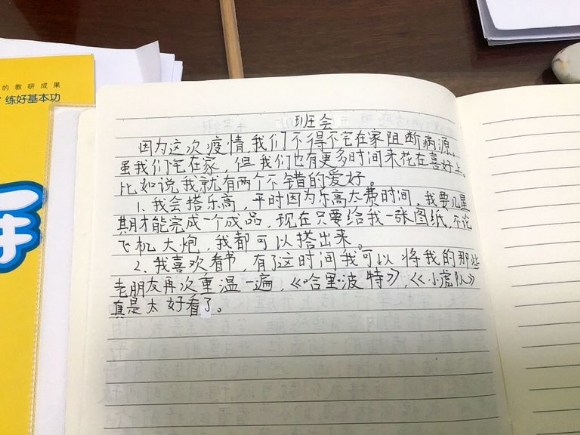 的教研成果
练好基本功
班会
因为这次疫情我们不得不宅在家阻断病源。
虽我们宅在家，但我们也有更多时间来花在喜好上。
比如说我就有两个不错的爱好。
1. 我会搭乐高，平时因为乐高太费时间，我要几星
期才能完成一个成品，现在只要给我一张图纸，不论
飞机大炮，我都可以搭出来。
2. 我喜欢看书，有了这时间我可以将我的那些
老朋友再次重温一遍，《哈里·波特》，《小虎队》
真是太好看了。